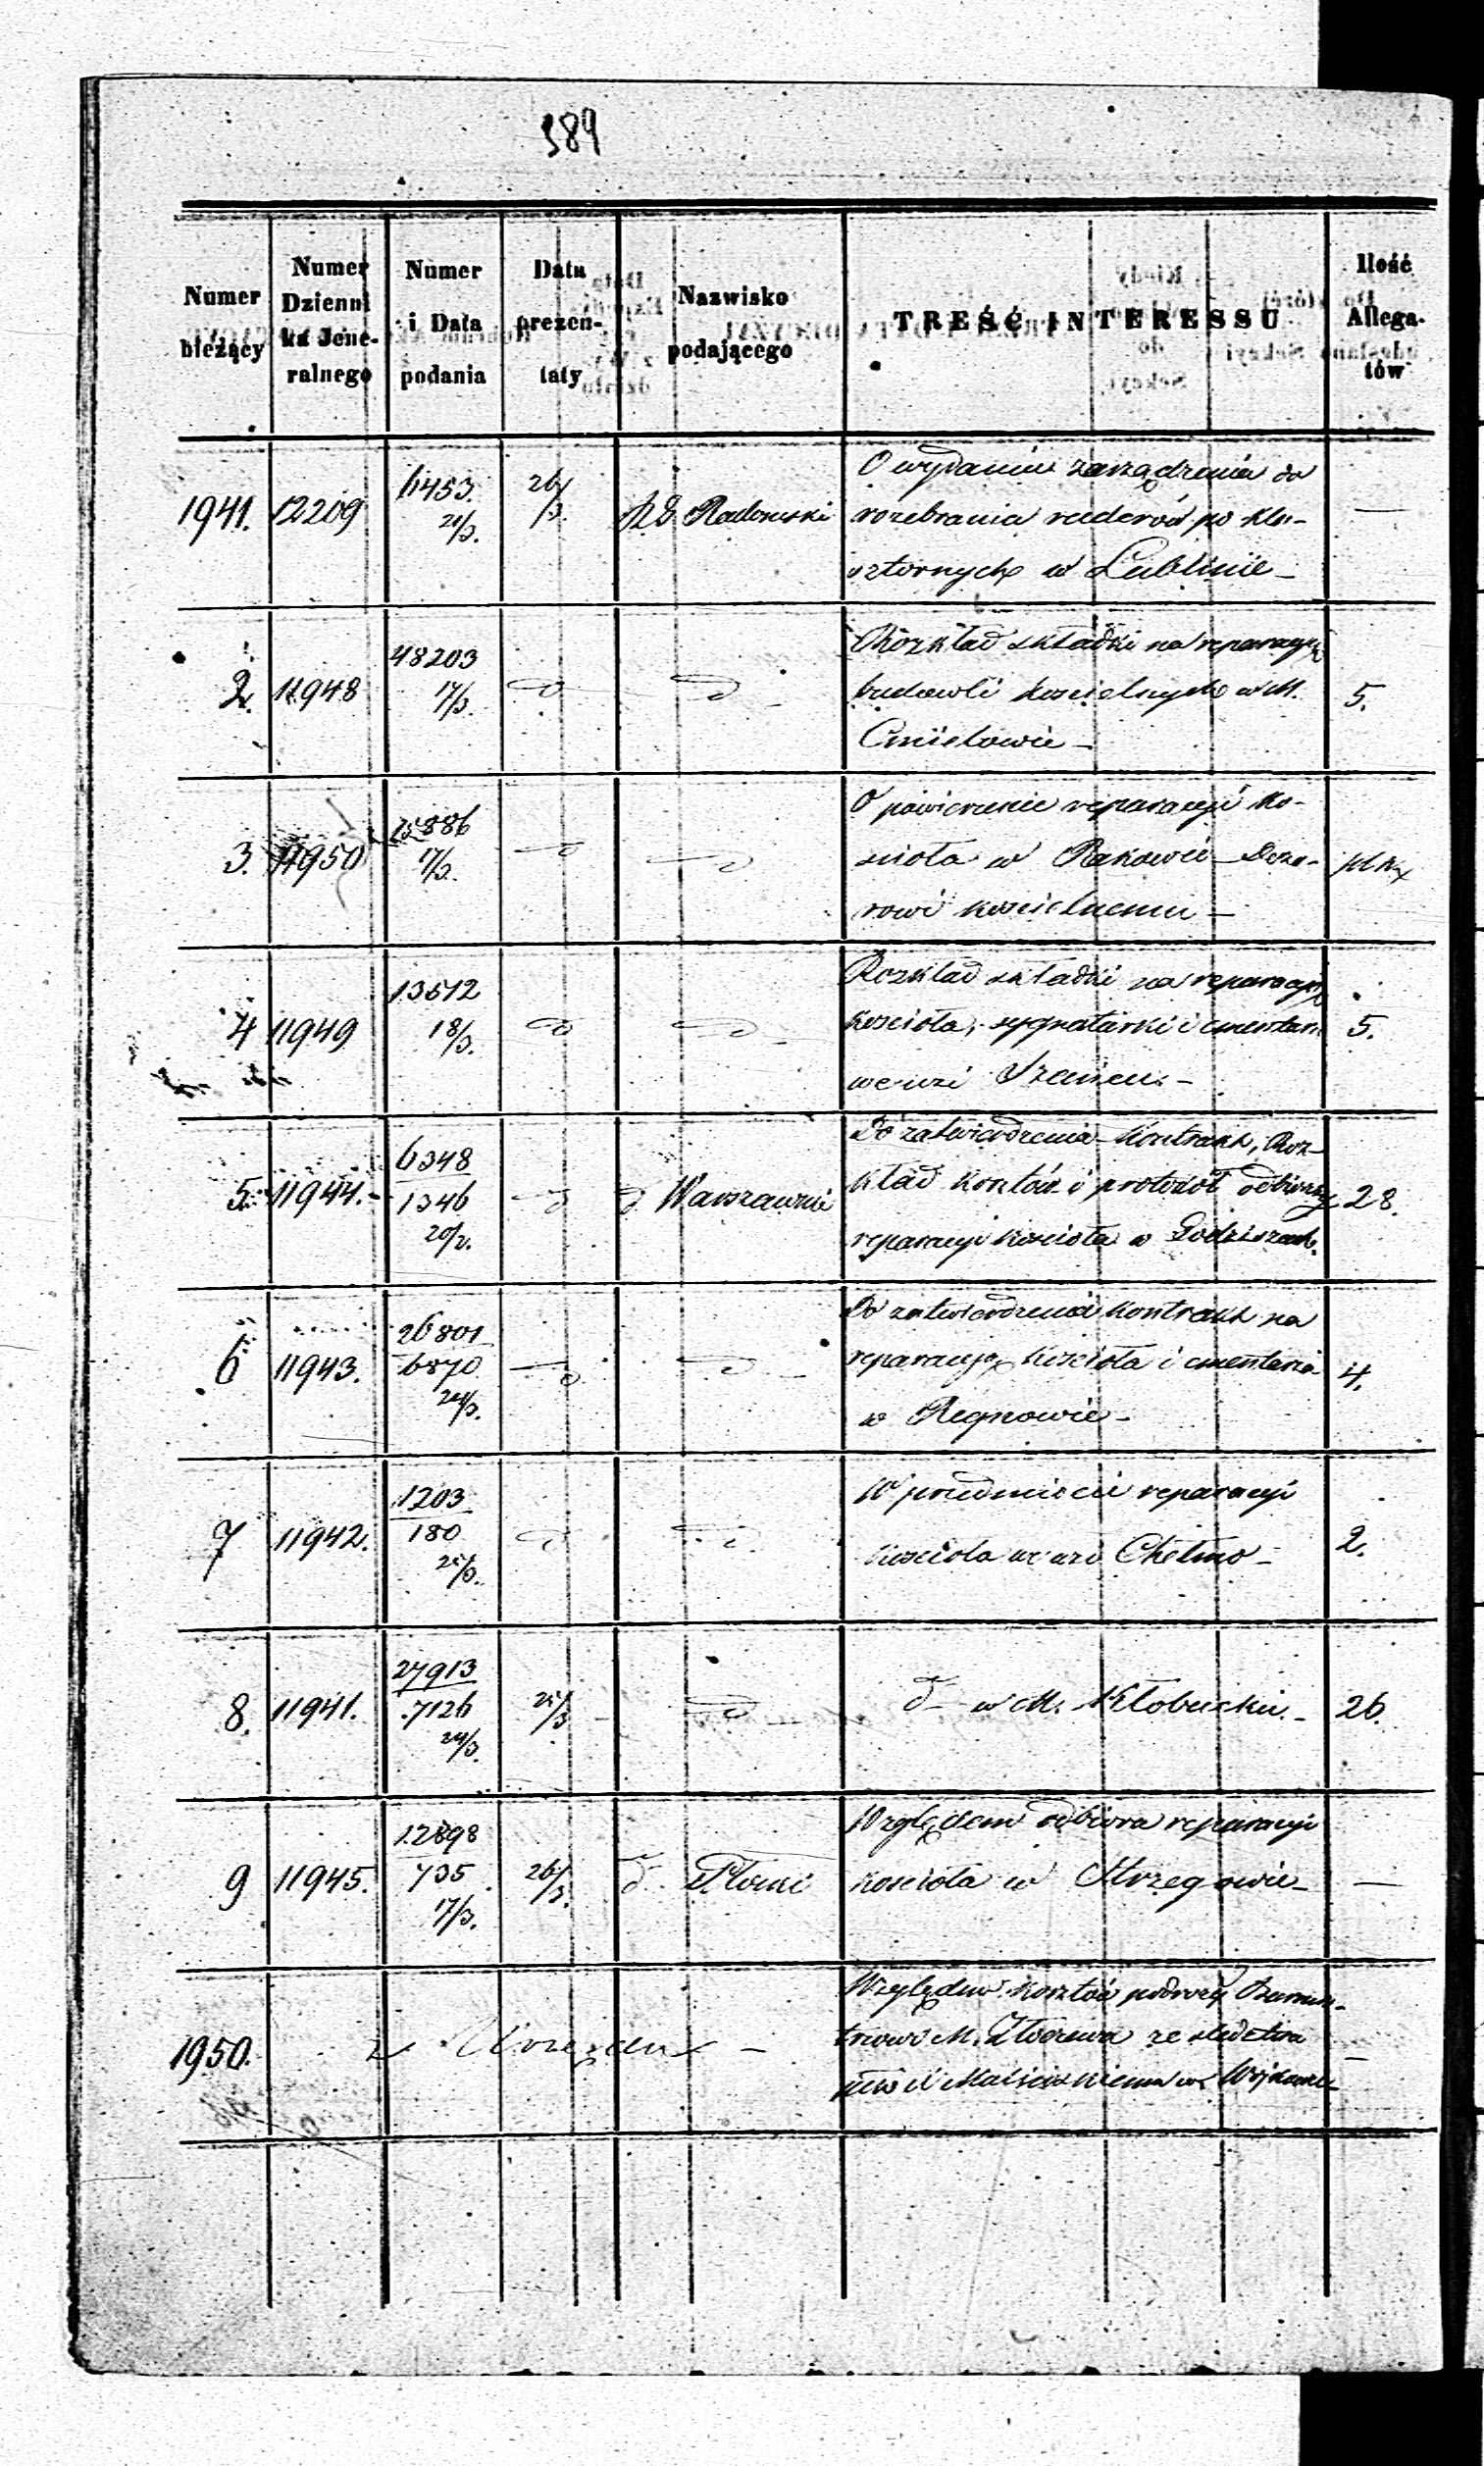 389
Numer bieżący
Numer Dziennika Jeneralnego
Numer i Data podania
Data prezentaty
Nazwisko podającego
TREŚĆ INTERESSU
Ilość Allegatów
1941. 12209 11453. 21/3. 26/3. Radomski O wydanie zarządzenia do
rozebrania ruderów po kla-
sztornych w Lublinie —
2. 11948 48203 17/3. d d Rozkład składki na reparacyę
budowli kościelnych w M.
Cmielowie — 5.
3. 11950 15886 17/3. d d O powierzenie reparacyi ko-
scioła w Rakowie Dozo-
rowi kościelnemu —
4 11949 13512 18/3. d d Rozkład składki na reparacyę
kościoła, sygnaturki i cmentarza
we wsi Szaniec — 5.
5. 11944. 6348 1346 20/2. d d Warszawski Do zatwierdzenia Kontrakt, Roz-
kład kosztów i protokół odbiorczy
reparacyi kościoła w 28.
6 11943. 26801 6870 24/3. d d Do zatwierdzenia kontrakt na
reparacyę kościoła i cmentarza
w Regnowie — 4.
7 11942. 1203 180 25/3. d d W przedmiocie reparacyi
kościoła we wsi Chełmo — 2.
8. 11941. 27913 7126 24/3. 25/3 d d w M. Kłobucku. — 26.
9 11945. 12898 735 17/3. 26/3. d Płocki Względem odbioru reparacyi
kościoła w Strzegowie — —
1950. z Urzędu — Względem kosztów podróży Burmi-
strzowi M. Złoczewa ze śledztwa